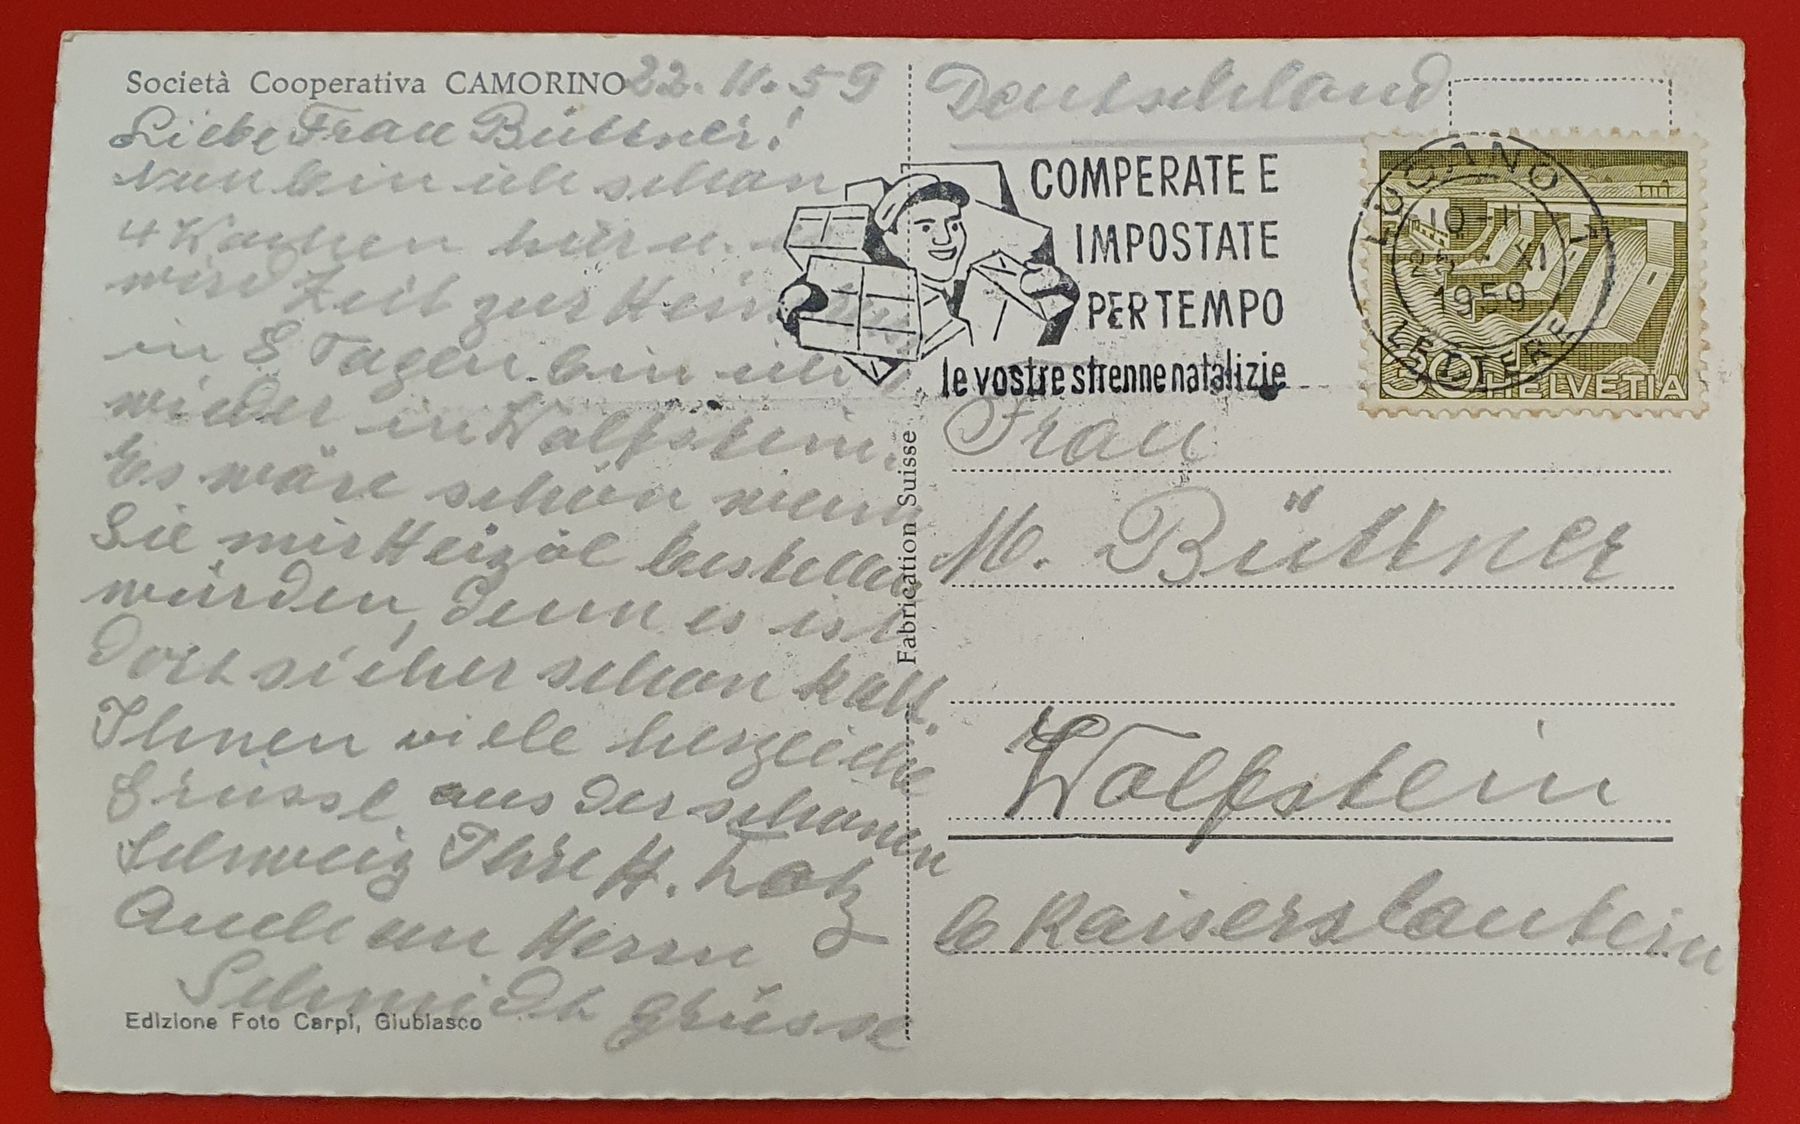 Società Cooperativa CAMORINO
22.11.59
Liebe Frau Büttner!
Nun bin ich schon
4 Wochen hier u.
wird Zeit zur
in 8 Tagen bin ich
wieder in Wolfstein.
Es wäre schön wenn
Sie mir Heizöl bestellen
würden, denn es ist
dort sicher schon kalt.
Ihnen viele herzliche
Grüsse aus der schönen
Schweiz Ihre H. Lotz
Auch an Herrn
Schmidt grüsse
Edizione Foto Carpi, Giubiasco
Fabrication Suisse
Deutschland
COMPERATE E
IMPOSTATE
PER TEMPO
le vostre strenne natalizie
LUGANO 1
10-11
XI
1959
LETTERE
30 HELVETIA
Frau
M. Büttner
Wolfstein
b Kaiserslautern